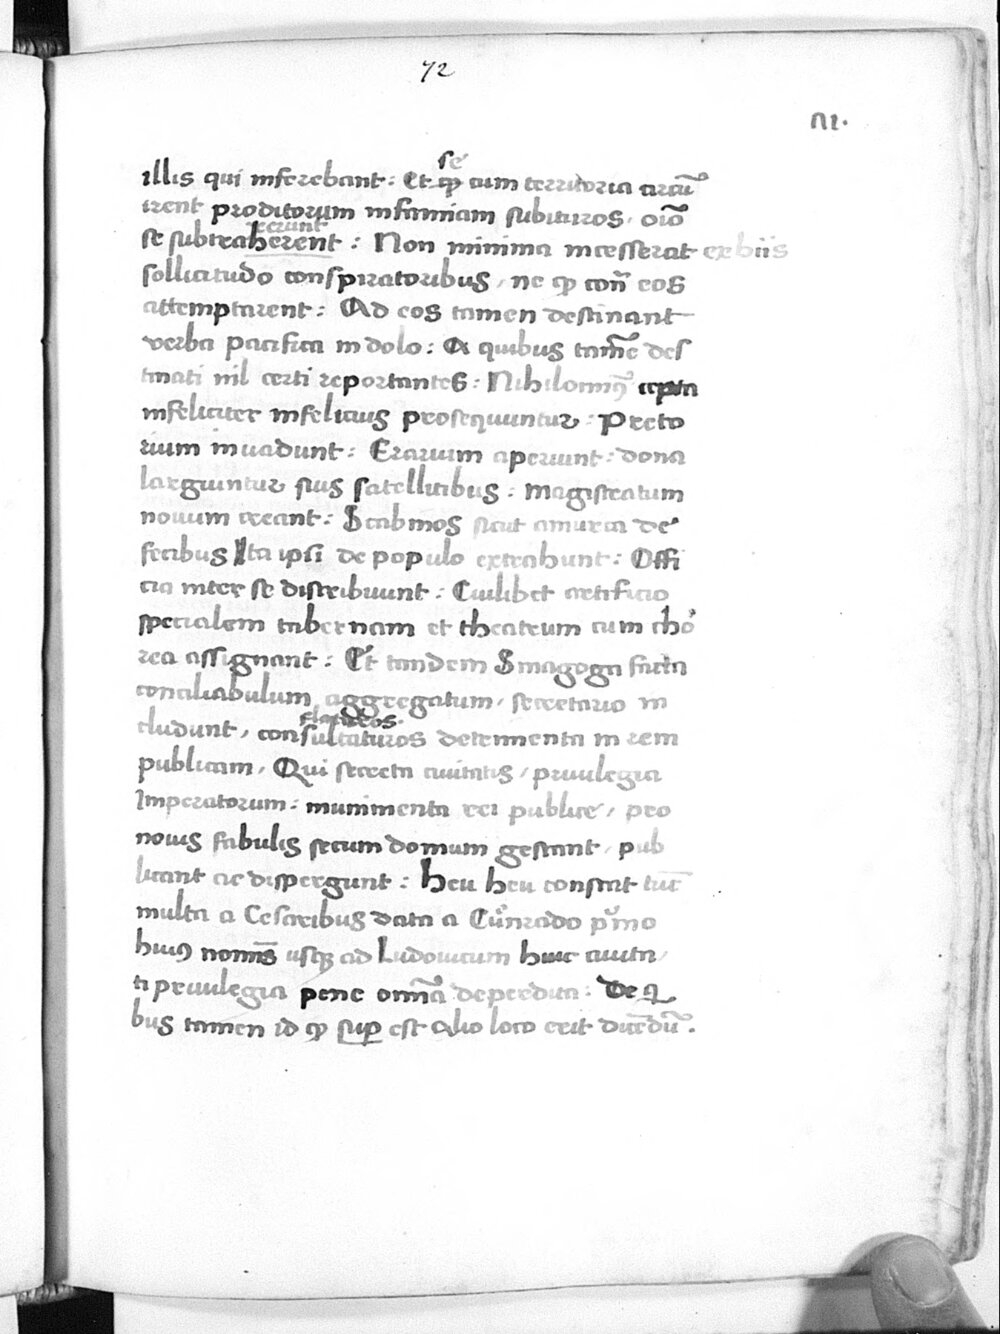 72
VI.
illis qui inferebant : Et se cum territoria
irent proditorum infamiam subituros, oīo
se subtraherent : Non minima incesserat ex hiis
erunt
sollicitudo conspiratoribus, ne eos
attemptarent : Ad eos tamen destinant
verba pacifica in dolo : A quibus tamē des
tinati nil certi reportantes : Nihilomiꝰ cepta
infeliciter infelicius prosequuntur : Preto
rium inuadunt : Erarium aperiunt : dona
largiuntur suis satellitibus : Magistratum
nouum creant : Scabinos sicut amurca de
fecibus Ita ipsi de populo extrahunt : Offi
cia inter se distribuunt : Cuilibet artificio
specialem tabernam et theatrum cum cho
rea assignant : Et tandem Sinagoga facta
conciliabulum aggregatum, secretario in
cludunt, consultaturos detrimenta in rem
publicam, Qui secreta ciuitatis, priuilegia
Imperatorum : munimenta rei publice, pro
nouis fabulis secum domum gestant, pub
licant ac dispergunt : heu heu constat
multa a Cesaribus data a Cūnrado pͥmo
huiꝰ nomīs usqꝫ ad Ludouicum huic ciuita
ti priuilegia pene omīa deperdita : De q
bus tamen id ꝙ suꝑ est alio loco erit dicēdū.